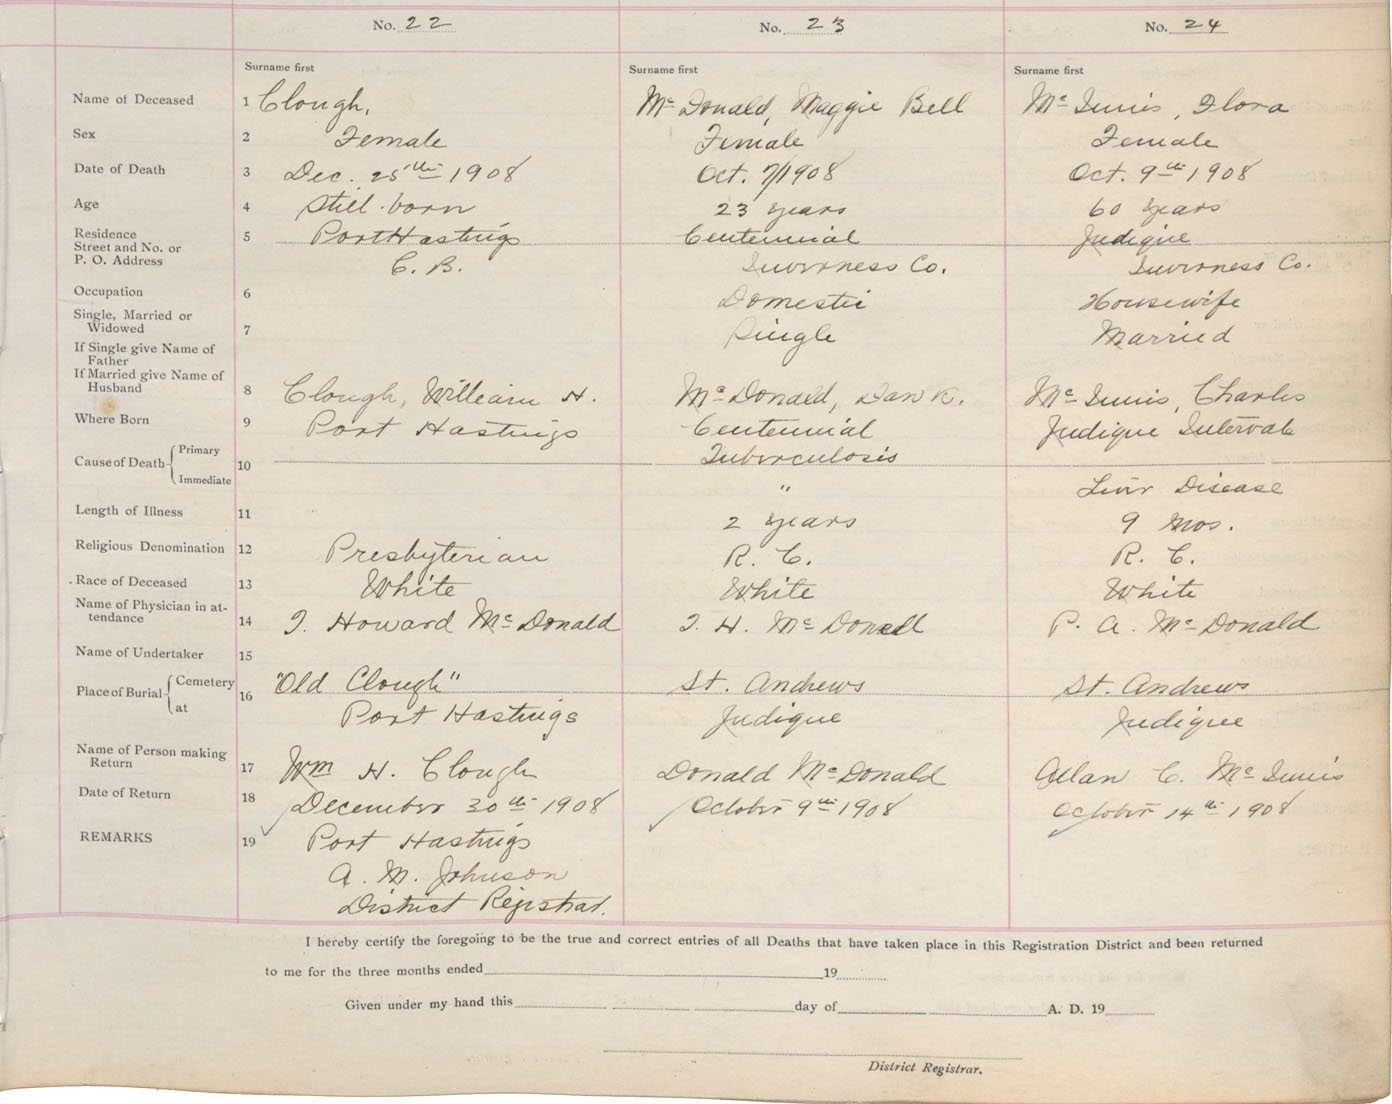 No. 22 No. 23 No. 24
Surname first Surname first Surname first
Name of Deceased 1 Clough, McDonald, Maggie Bell McInnis, Flora
Sex 2 Female Female Female
Date of Death 3 Dec. 25th 1908 Oct. 7/1908 Oct. 9th 1908
Age 4 Still-born 23 years 60 years
Residence 5 Port Hastings Centennial Judique
Street and No. or
P. O. Address C. B. Inverness Co. Inverness Co.
Occupation 6 Domestic Housewife
Single, Married or
Widowed 7 Single Married
If Single give Name of
Father
If Married give Name of
Husband 8 Clough, William H. McDonald, Dan K. McInnis, Charles
Where Born 9 Port Hastings Centennial Judique Intervale
Cause of Death Primary 10 Tuberculosis
Immediate " Liver Disease
Length of Illness 11 2 years 9 mos.
Religious Denomination 12 Presbyterian R. C. R. C.
Race of Deceased 13 White White White
Name of Physician in at-
tendance 14 I. Howard McDonald I. H. McDonell P. A. McDonald
Name of Undertaker 15
Place of Burial Cemetery 16 "Old Clough" St. Andrews St. Andrews
at Port Hastings Judique Judique
Name of Person making
Return 17 Wm H. Clough Donald McDonald Allan C. McInnis
Date of Return 18 December 30th 1908 October 9th 1908 October 14th 1908
REMARKS 19 Port Hastings
A. M. Johnson
District Registrar.
I hereby certify the foregoing to be the true and correct entries of all Deaths that have taken place in this Registration District and been returned
to me for the three months ended 19
Given under my hand this day of A. D. 19
District Registrar.